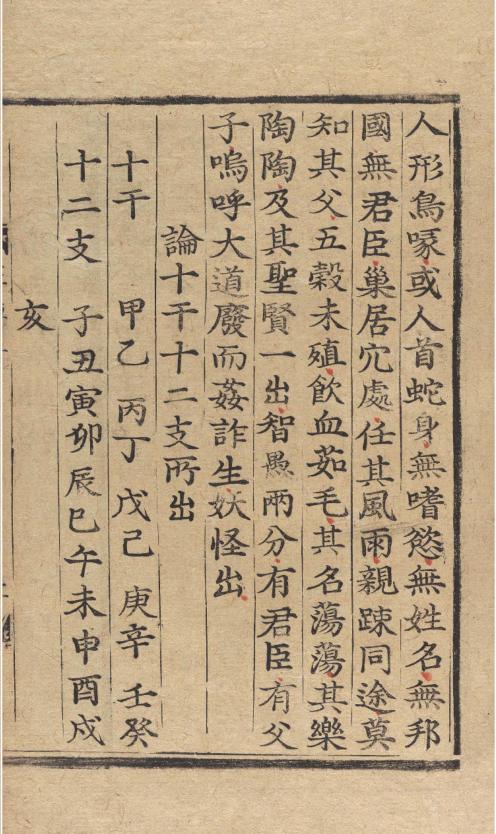 人形鳥喙或人首蛇身無嗜慾無姓名無邦
國無君臣巢居穴處任其風雨親踈同途莫
知其父五穀未殖飲血茹毛其名蕩蕩其樂
陶陶及其聖賢一出智愚兩分有君臣有父
子嗚呼大道廢而姦詐生妖怪出
論十干十二支所出
十干 甲乙 丙丁 戊己 庚辛 壬癸
十二支 子丑寅卯辰巳午未申酉戌
亥